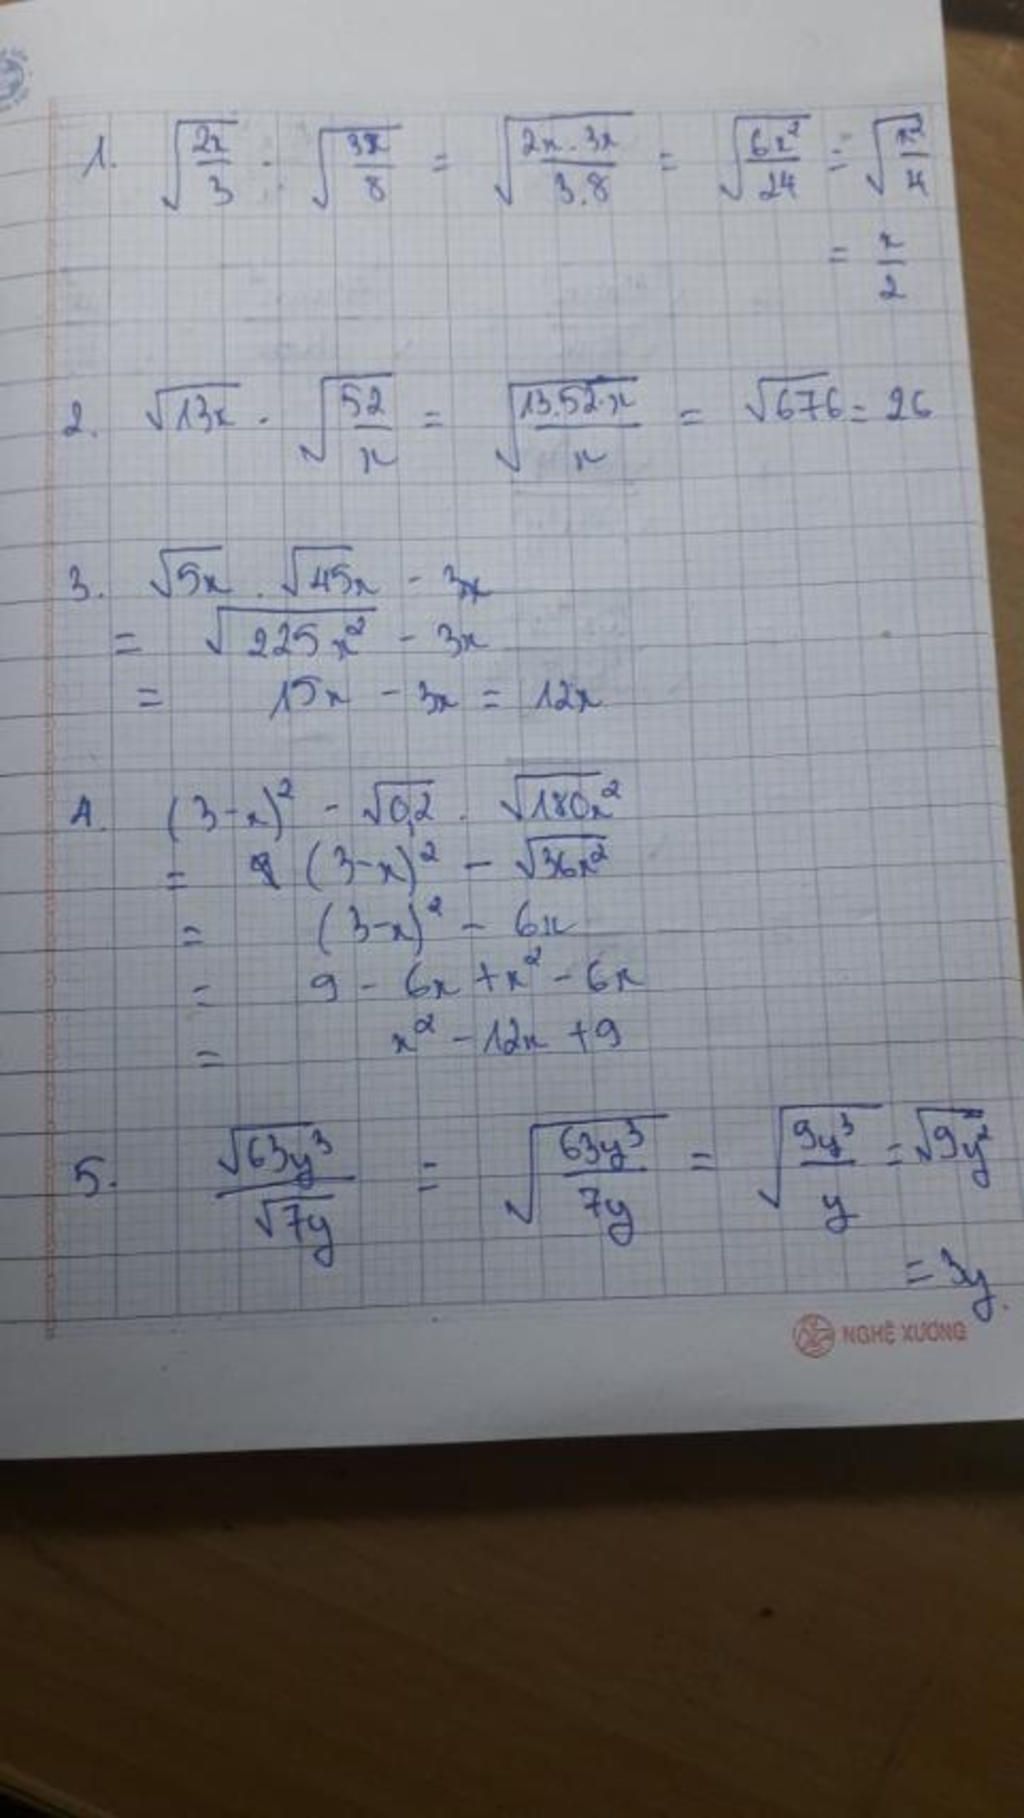 1. √(2x/3) . √(3x/8) = √(2x.3x/3.8) = √(6x²/24) = √(x²/4)
= x/2
2. √13x . √(52/x) = √(13.52.x/x) = √676 = 26
3. √5x . √45x - 3x
= √225x² - 3x
= 15x - 3x = 12x
4. (3-x)² - √0,2 . √180x²
= (3-x)² - √36x²
= (3-x)² - 6x
= 9 - 6x + x² - 6x
= x² - 12x + 9
5. √63y³/√7y = √(63y³/7y) = √(9y³/y) = √9y²
= 3y.
NGHÊ XƯƠNG